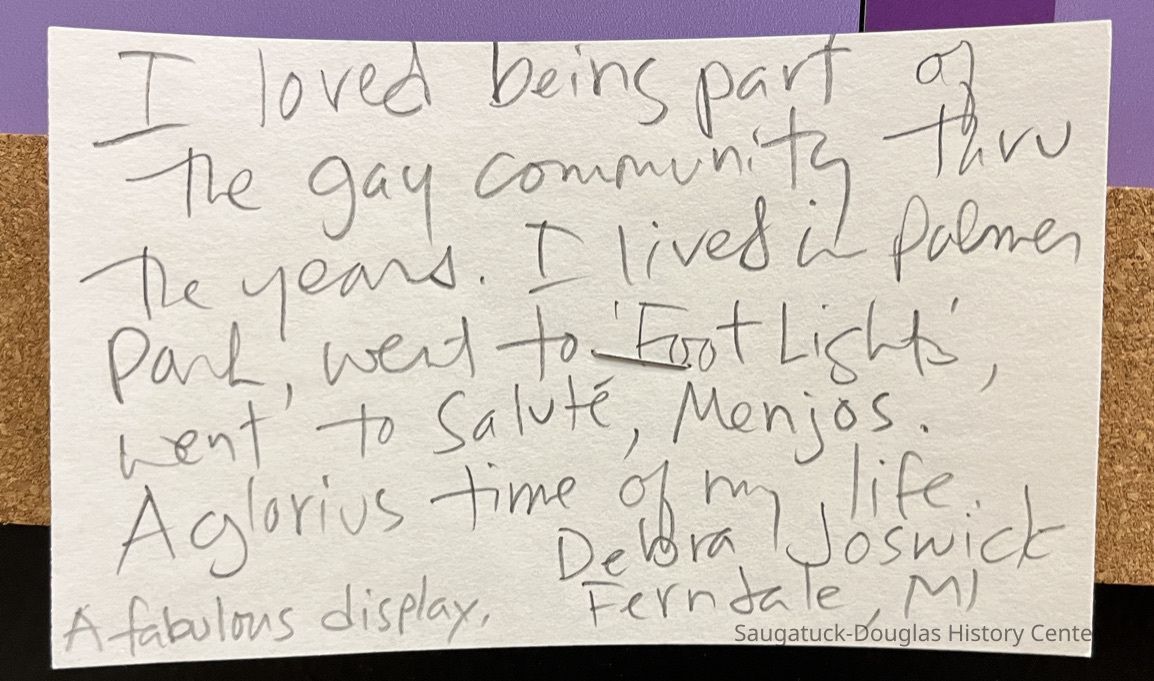 I loved being part of
the gay community thru
the years. I lived in Palmer
Park, went to 'Foot Lights',
went to Saluté, Menjos.
A glorius time of my life.
Debra Joswick
Ferndale, MI
A fabulous display.
Saugatuck-Douglas History Cente